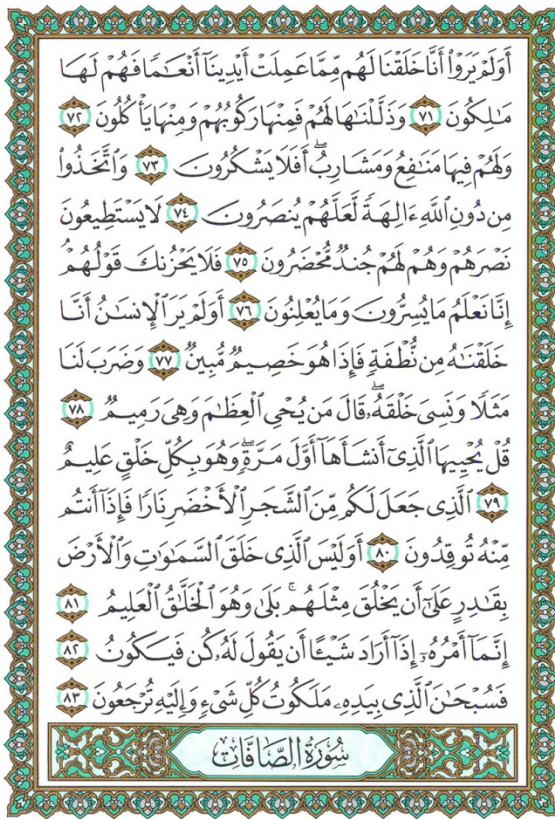 أَوَلَمْ يَرَوْا۟ أَنَّا خَلَقْنَا لَهُم مِّمَّا عَمِلَتْ أَيْدِينَآ أَنْعَـٰمًا فَهُمْ لَهَا
مَـٰلِكُونَ ٧١ وَذَلَّلْنَـٰهَا لَهُمْ فَمِنْهَا رَكُوبُهُمْ وَمِنْهَا يَأْكُلُونَ ٧٢
وَلَهُمْ فِيهَا مَنَـٰفِعُ وَمَشَارِبُ ۖ أَفَلَا يَشْكُرُونَ ٧٣ وَٱتَّخَذُوا۟
مِن دُونِ ٱللَّهِ ءَالِهَةً لَّعَلَّهُمْ يُنصَرُونَ ٧٤ لَا يَسْتَطِيعُونَ
نَصْرَهُمْ وَهُمْ لَهُمْ جُندٌ مُّحْضَرُونَ ٧٥ فَلَا يَحْزُنكَ قَوْلُهُمْ ۘ
إِنَّا نَعْلَمُ مَا يُسِرُّونَ وَمَا يُعْلِنُونَ ٧٦ أَوَلَمْ يَرَ ٱلْإِنسَـٰنُ أَنَّا
خَلَقْنَـٰهُ مِن نُّطْفَةٍ فَإِذَا هُوَ خَصِيمٌ مُّبِينٌ ٧٧ وَضَرَبَ لَنَا
مَثَلًا وَنَسِىَ خَلْقَهُۥ ۖ قَالَ مَن يُحْىِ ٱلْعِظَـٰمَ وَهِىَ رَمِيمٌ ٧٨
قُلْ يُحْيِيهَا ٱلَّذِىٓ أَنشَأَهَآ أَوَّلَ مَرَّةٍ ۖ وَهُوَ بِكُلِّ خَلْقٍ عَلِيمٌ
٧٩ ٱلَّذِى جَعَلَ لَكُم مِّنَ ٱلشَّجَرِ ٱلْأَخْضَرِ نَارًا فَإِذَآ أَنتُم
مِّنْهُ تُوقِدُونَ ٨٠ أَوَلَيْسَ ٱلَّذِى خَلَقَ ٱلسَّمَـٰوَٰتِ وَٱلْأَرْضَ
بِقَـٰدِرٍ عَلَىٰٓ أَن يَخْلُقَ مِثْلَهُم ۚ بَلَىٰ وَهُوَ ٱلْخَلَّـٰقُ ٱلْعَلِيمُ ٨١
إِنَّمَآ أَمْرُهُۥٓ إِذَآ أَرَادَ شَيْـًٔا أَن يَقُولَ لَهُۥ كُن فَيَكُونُ ٨٢
فَسُبْحَـٰنَ ٱلَّذِى بِيَدِهِۦ مَلَكُوتُ كُلِّ شَىْءٍ وَإِلَيْهِ تُرْجَعُونَ ٨٣
سُورَةُ الصَّافَاتِ